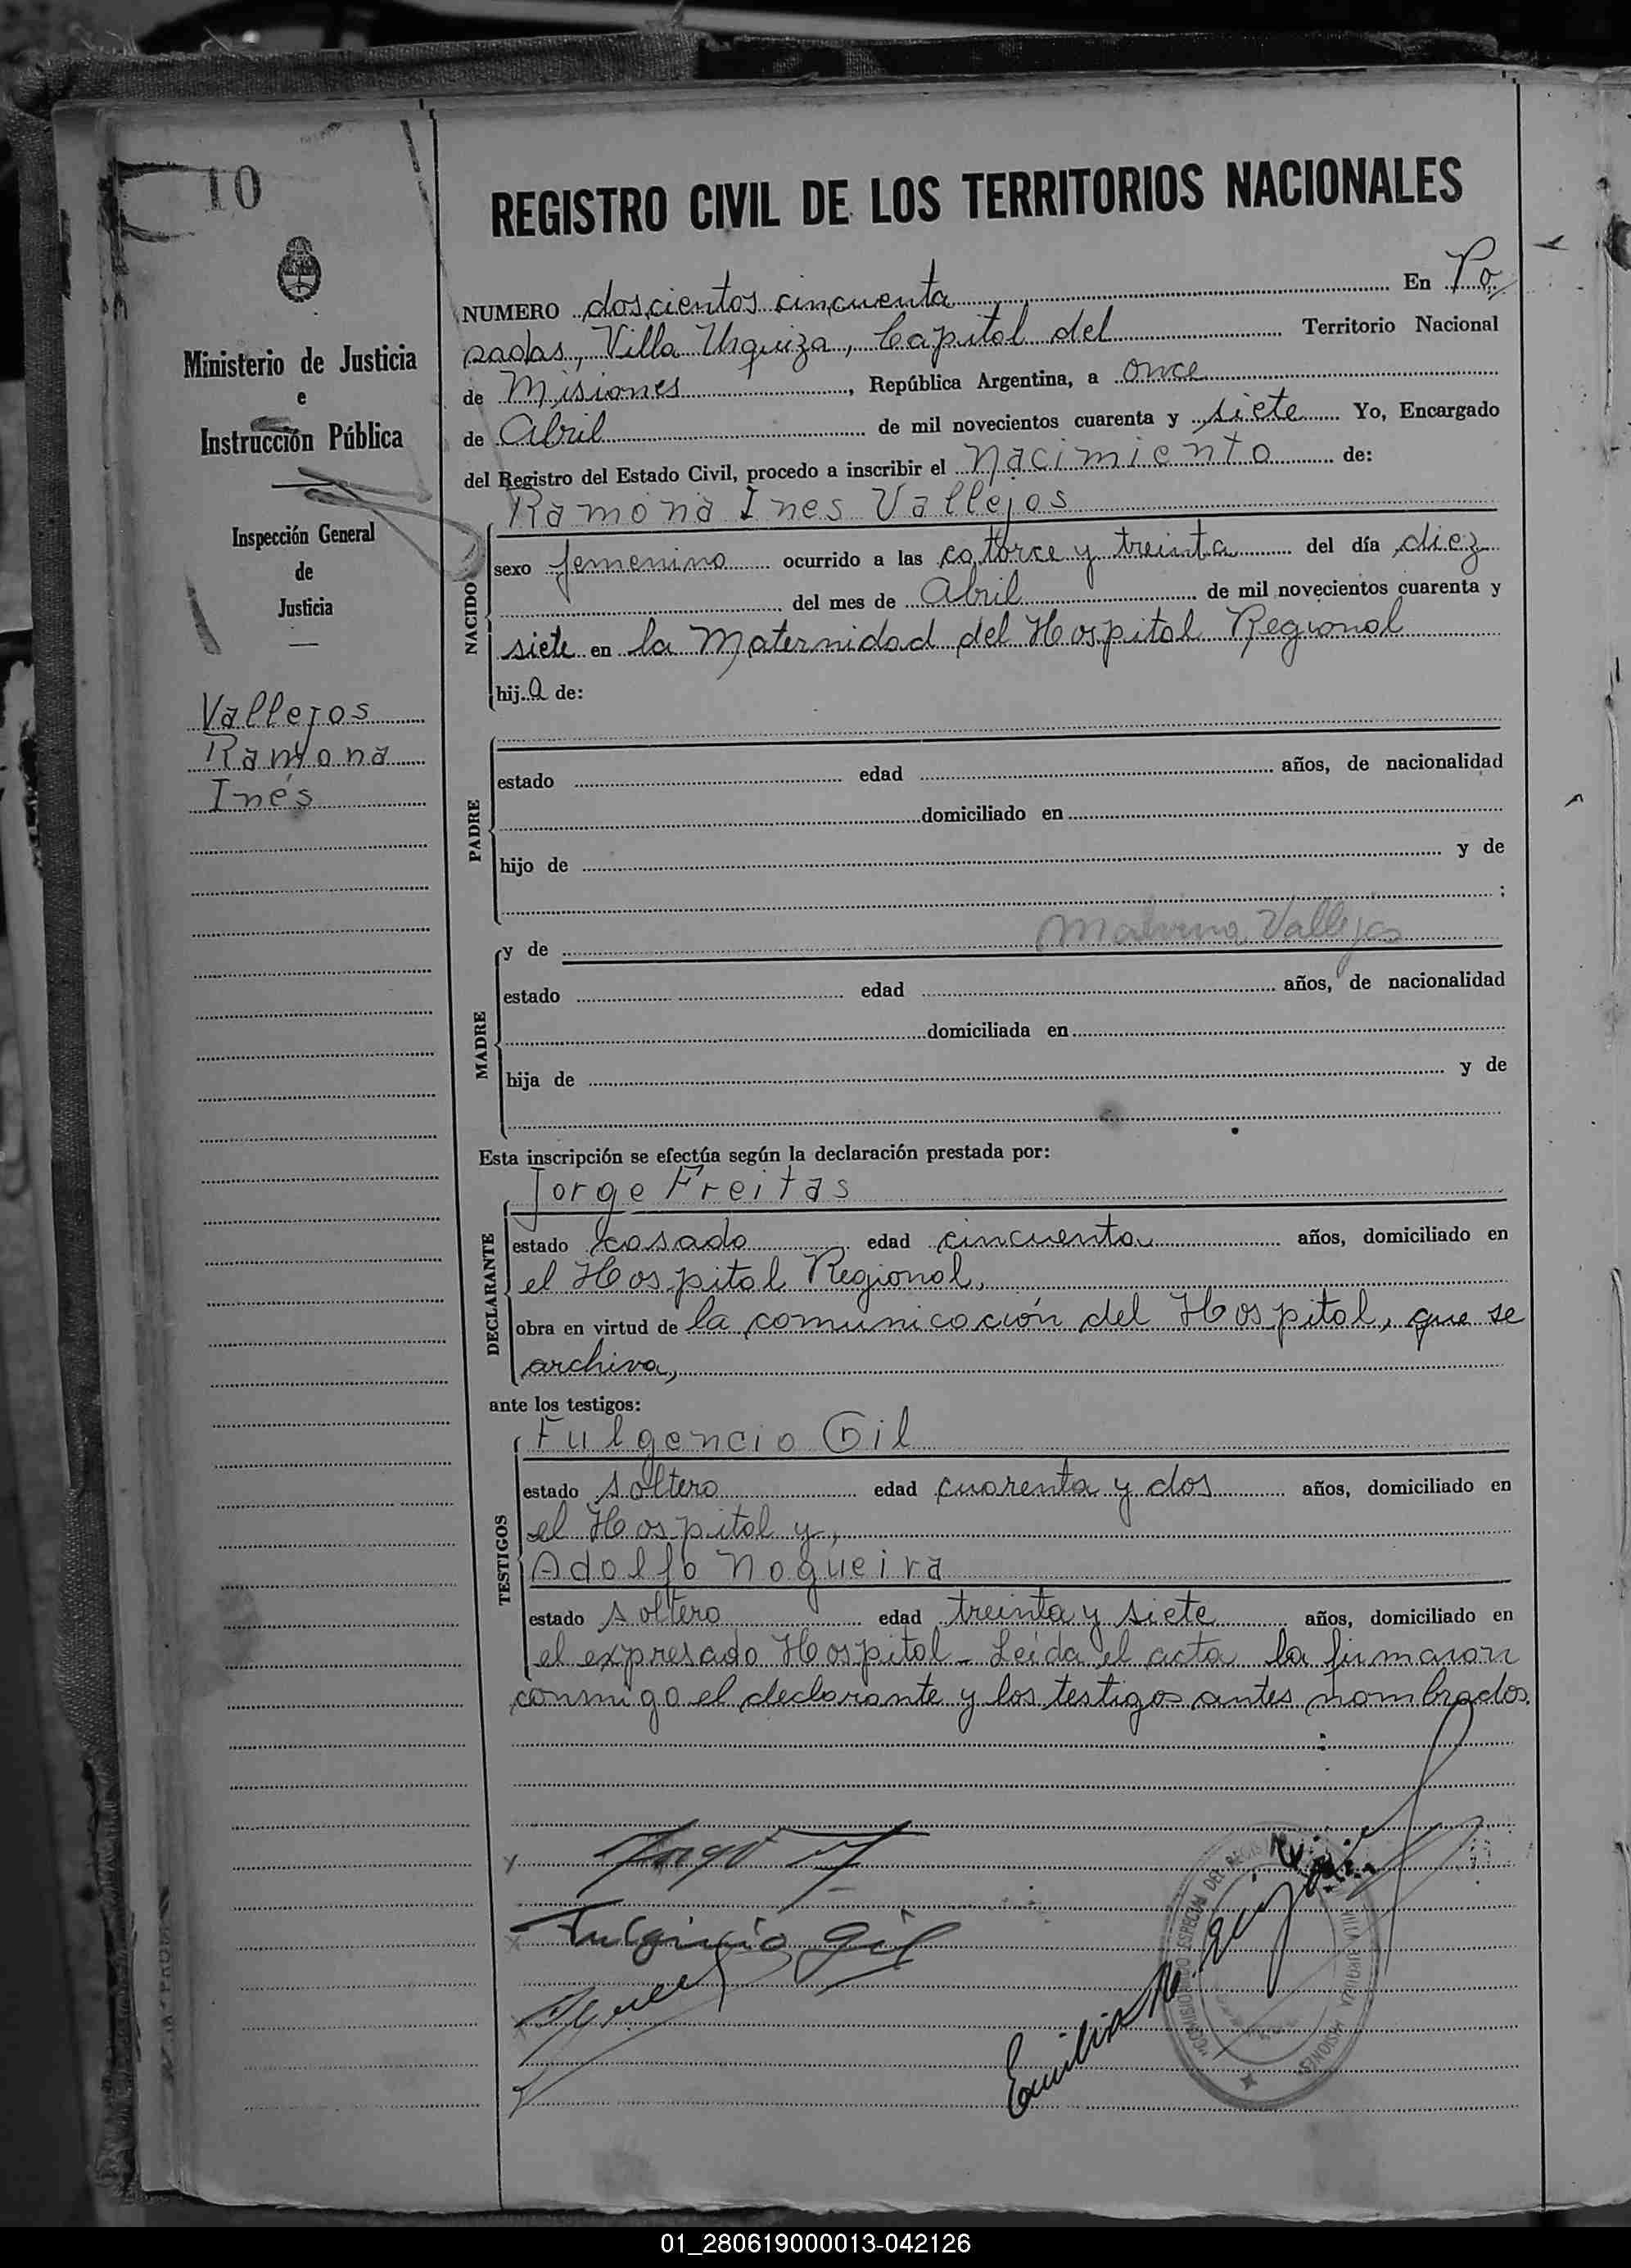 10
REGISTRO CIVIL DE LOS TERRITORIOS NACIONALES
Ministerio de Justicia
e
Instrucción Pública
Inspección General
de
Justicia
Vallejos
Ramona
Inés
NUMERO doscientos cincuenta En Po
sadas, Villa Urquiza, Capital del Territorio Nacional
de Misiones, República Argentina, a once
de Abril de mil novecientos cuarenta y siete Yo, Encargado
del Registro del Estado Civil, procedo a inscribir el nacimiento de:
Ramona Ines Vallejos
NACIDO
sexo femenino ocurrido a las catorce y treinta del día diez
del mes de Abril de mil novecientos cuarenta y
siete en la Maternidad del Hospital Regional
hija de:
PADRE
estado edad años, de nacionalidad
domiciliado en
hijo de y de
;
MADRE
y de Malvina Vallejos
estado edad años, de nacionalidad
domiciliada en
hija de y de
Esta inscripción se efectúa según la declaración prestada por:
Jorge Freitas
DECLARANTE
estado casado edad cincuenta años, domiciliado en
el Hospital Regional,
obra en virtud de la comunicación del Hospital, que se
archiva,
ante los testigos:
Fulgencio Gil
TESTIGOS
estado soltero edad cuarenta y dos años, domiciliado en
el Hospital y,
Adolfo Nogueira
estado soltero edad treinta y siete años, domiciliado en
el expresado Hospital - Leída el acta la firmaron
conmigo el declarante y los testigos antes nombrados.
Fulgencio Gil
Emilia
01_280619000013-042126